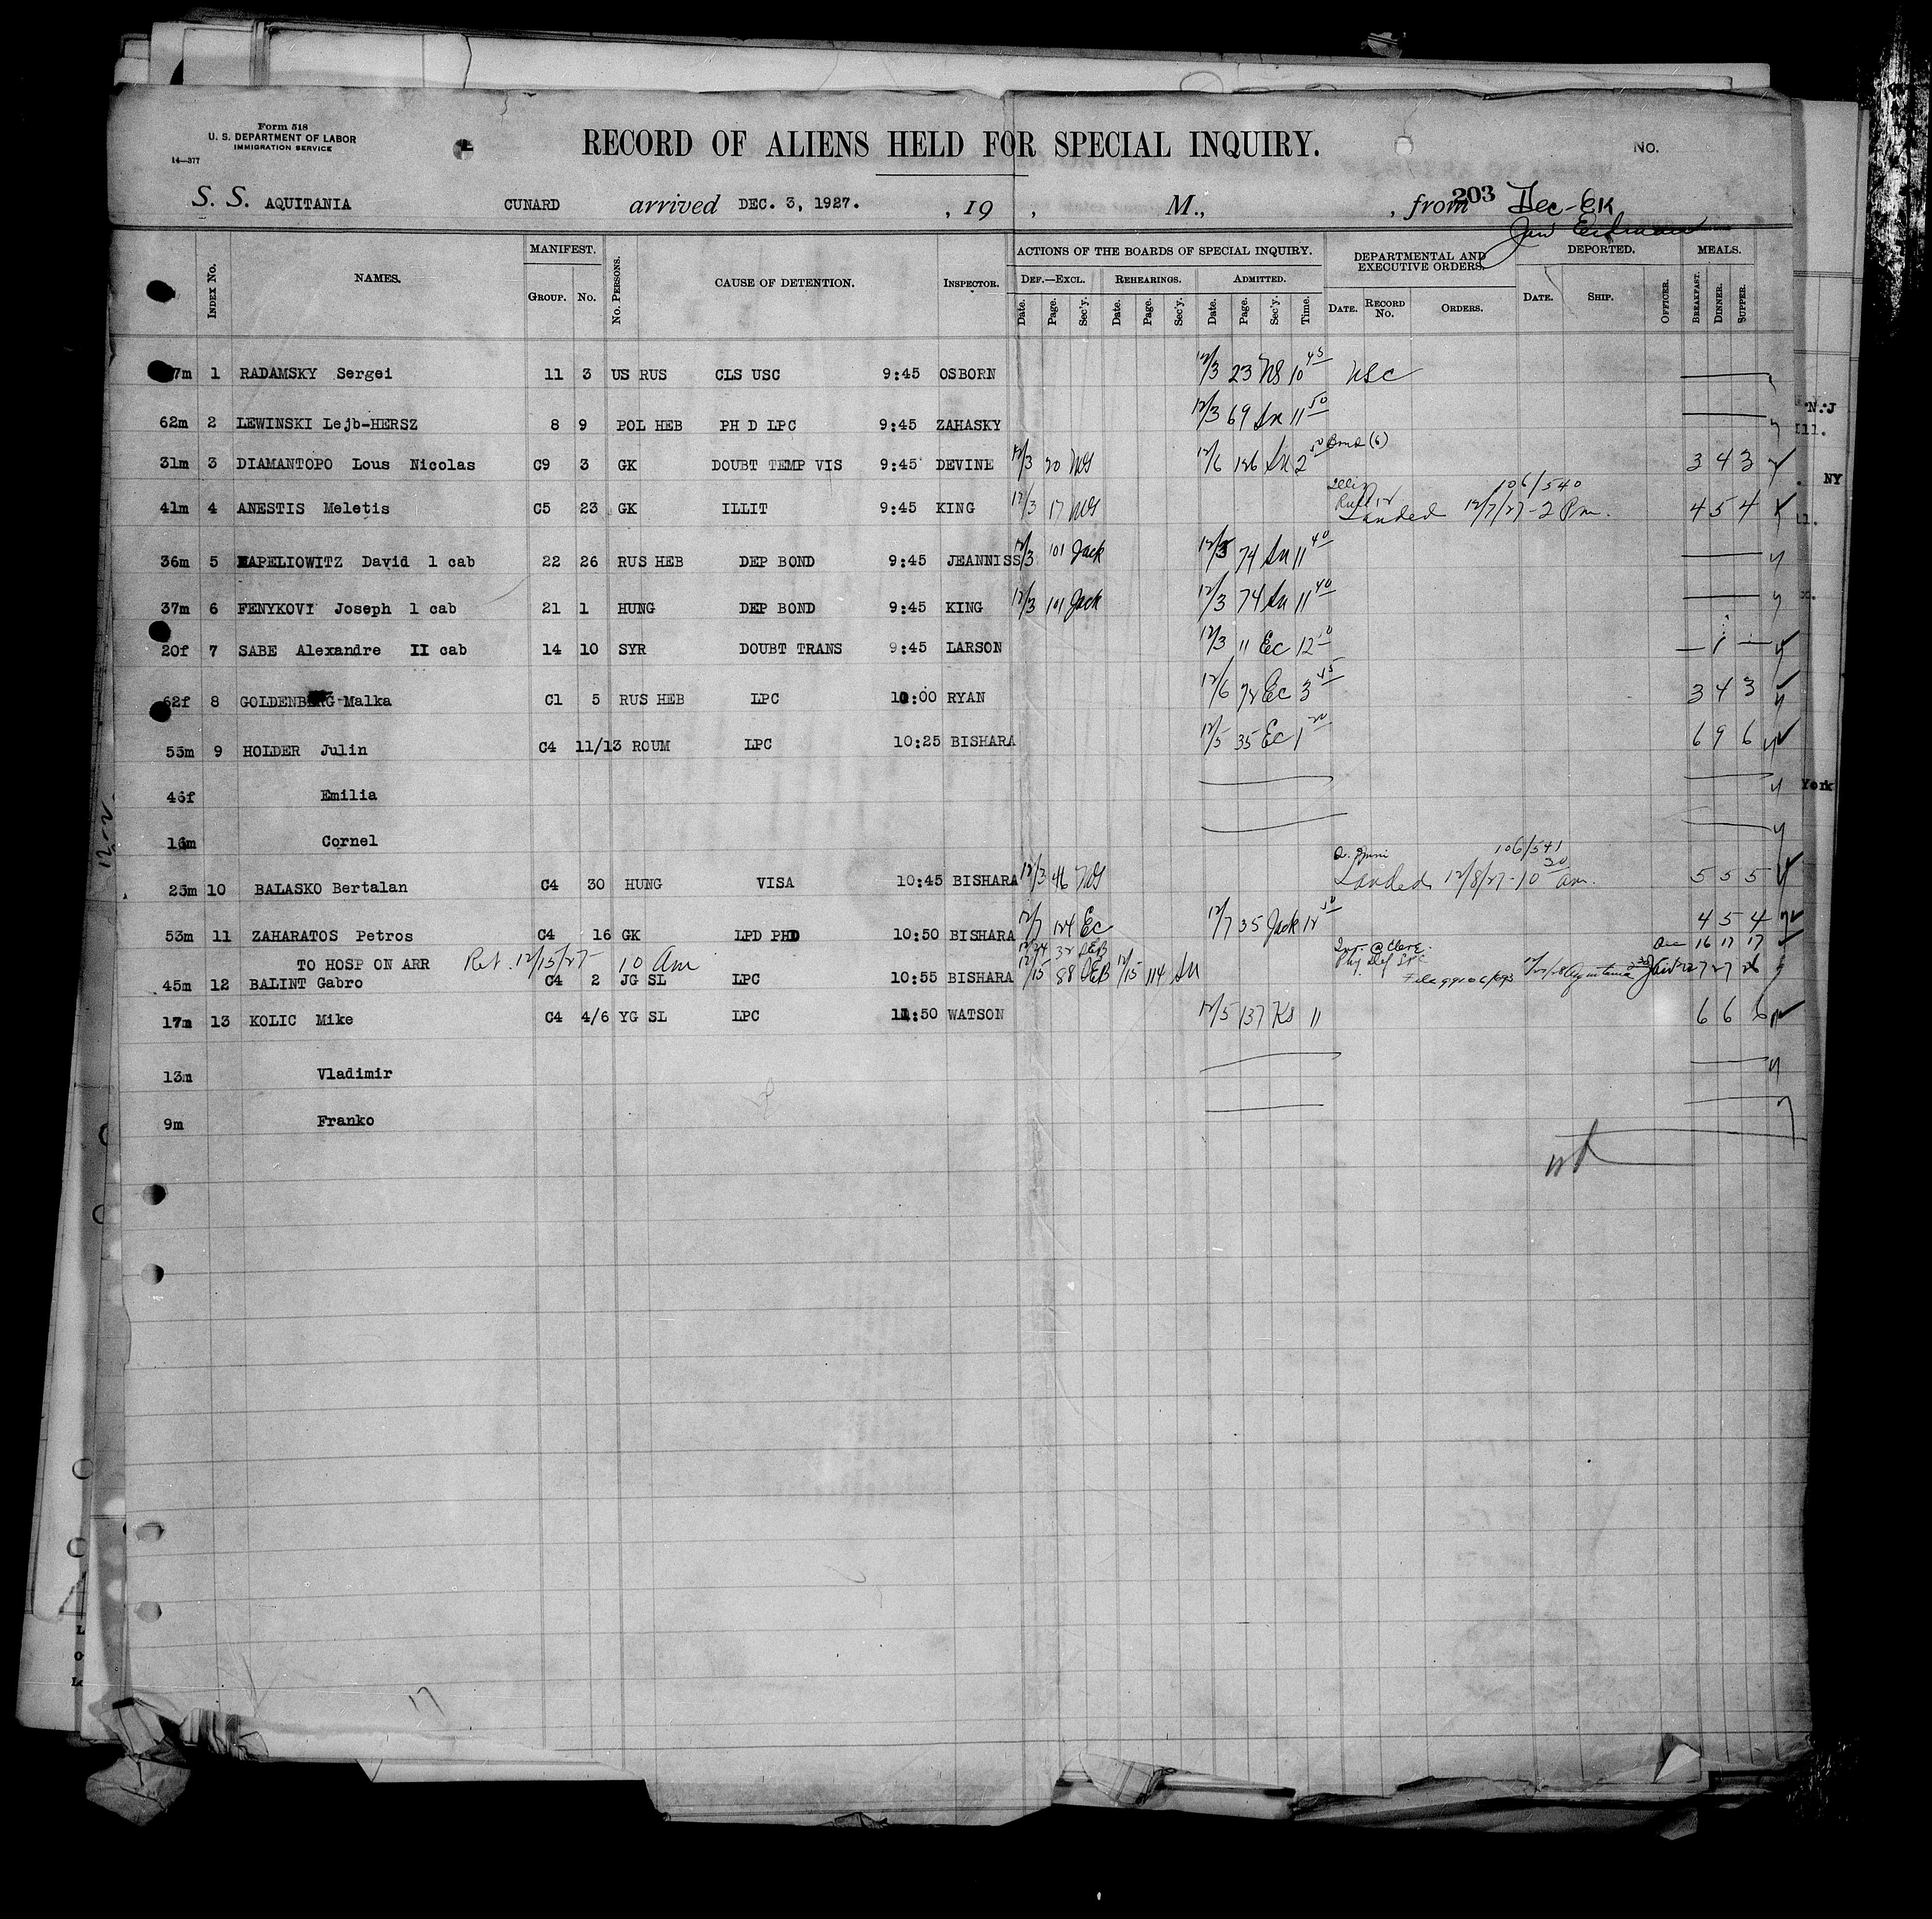 Form 518
U. S. DEPARTMENT OF LABOR
IMMIGRATION SERVICE
14—377
RECORD OF ALIENS HELD FOR SPECIAL INQUIRY.
No.
S. S. AQUITANIA CUNARD arrived DEC. 3, 1927. , 19 , M., , from 203
INDEX No. NAMES. MANIFEST. GROUP. No. No. PERSONS. CAUSE OF DETENTION. INSPECTOR. ACTIONS OF THE BOARDS OF SPECIAL INQUIRY. DEPARTMENTAL AND EXECUTIVE ORDERS. DEPORTED. MEALS.
DEF.—EXCL. REHEARINGS. ADMITTED.
Date. Page. Sec'y. Date. Page. Sec'y. Date. Page. Sec'y. Time. DATE. RECORD No. ORDERS. DATE. SHIP. OFFICER. BREAKFAST. DINNER. SUPPER.
7m 1 RADAMSKY Sergei 11 3 US RUS CLS USC 9:45 OSBORN 12/3 23 NS 10 45 USC
62m 2 LEWINSKI Lejb-HERSZ 8 9 POL HEB PH D LPC 9:45 ZAHASKY 12/3 69 Sn 11 50
31m 3 DIAMANTOPO Lous Nicolas C9 3 GK DOUBT TEMP VIS 9:45 DEVINE 12/3 20 NS 12/6 126 Sn 2 50 Bond (6) 3 4 3
41m 4 ANESTIS Meletis C5 23 GK ILLIT 9:45 KING 12/3 17 NS 106/540 Landed 12/7/27-2 Pm. 4 5 4
36m 5 APELIOWITZ David 1 cab 22 26 RUS HEB DEP BOND 9:45 JEANNISS 12/3 101 Jack 12/3 74 Sn 11 40
37m 6 FENYKOVI Joseph 1 cab 21 1 HUNG DEP BOND 9:45 KING 12/3 101 Jack 12/3 74 Sn 11 40
20f 7 SABE Alexandre II cab 14 10 SYR DOUBT TRANS 9:45 LARSON 12/3 11 Ec 12 1
62f 8 GOLDENBERG Malka C1 5 RUS HEB LPC 10:00 RYAN 12/6 72 Ec 3 45 3 4 3
55m 9 HOLDER Julin C4 11/13 ROUM LPC 10:25 BISHARA 12/5 35 Ec 1 20 6 9 6
46f Emilia
16m Cornel
25m 10 BALASKO Bertalan C4 30 HUNG VISA 10:45 BISHARA 12/3 46 NS 106/541 Landed 12/8/27-10 30 am. 5 5 5
53m 11 ZAHARATOS Petros C4 16 GK LPD PHD 10:50 BISHARA 12/7 124 Ec 12/7 35 Jack 12 50 4 5 4
TO HOSP ON ARR Ret. 12/15/27- 10 Am 12/24 32 DEB Dec 16 17 17
45m 12 BALINT Gabro C4 2 JG SL LPC 10:55 BISHARA 12/15 88 DEB 12/15 114 Sn Aquitania 27 27 26
17m 13 KOLIC Mike C4 4/6 YG SL LPC 11:50 WATSON 12/5 137 KS 11 6 6 6
13m Vladimir
9m Franko
17
N.J
Ill.
NY
York